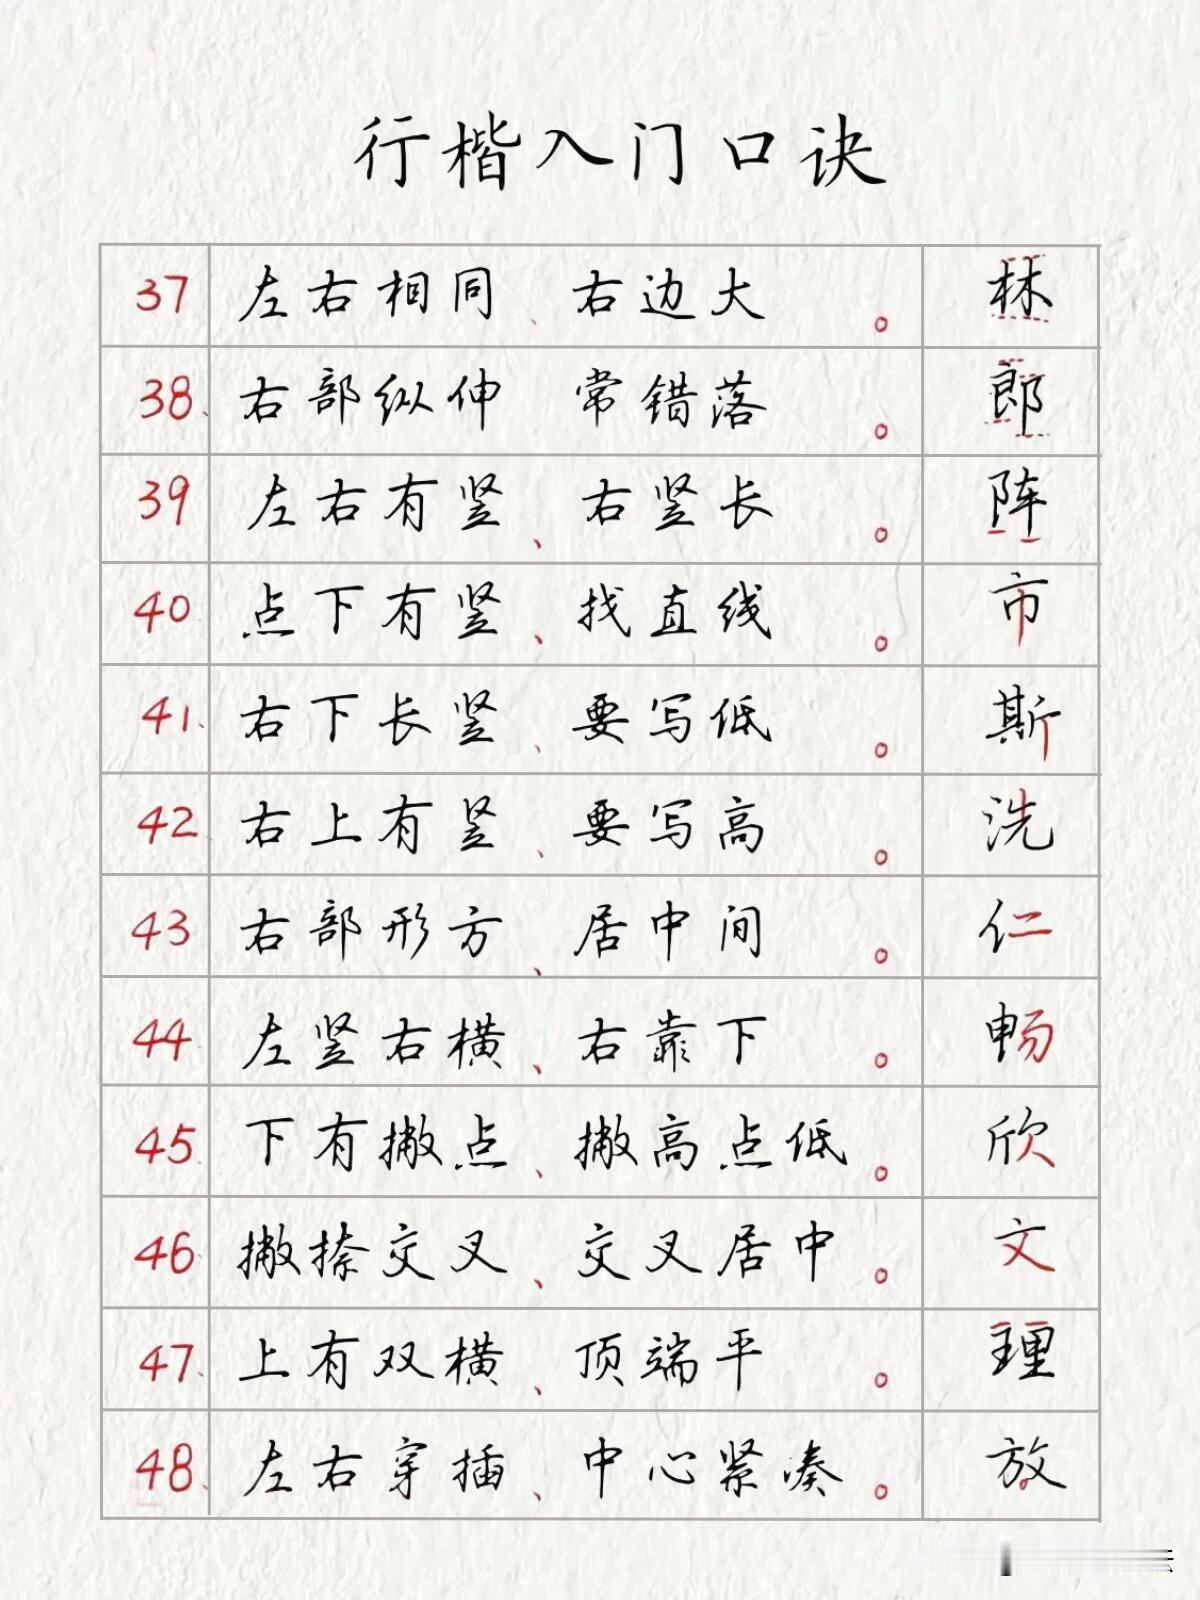 行楷入门口诀
37 左右相同、右边大。 林
38、右部纵伸 常错落。 郎
39 左右有竖、右竖长。 阵
40 点下有竖、找直线。 市
41、右下长竖、要写低。 斯
42、右上有竖、要写高。 洗
43 右部形方、居中间。 仁
44 左竖右横、右靠下。 畅
45、下有撇点、撇高点低。 欣
46、撇捺交叉、交叉居中。 文
47、上有双横、顶端平。 理
48、左右穿插、中心紧凑。 放